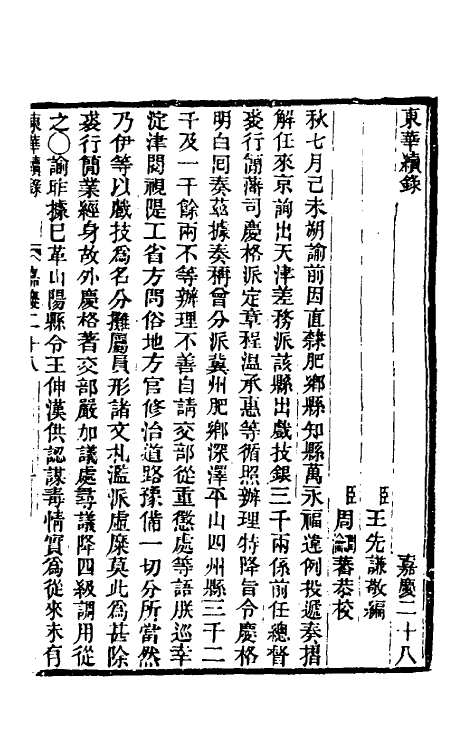 東華續錄 嘉慶二十八
臣王先謙敬編
臣周潤蕃恭校
秋七月己未朔諭前因直隸肥鄉縣知縣萬永福違例投遞奏摺
解任來京詢出天津差務派該縣出戲技銀三千兩係前任總督
裘行簡藩司慶格派定章程溫承惠等循照辦理特降旨令慶格
明白回奏茲據奏稱曾分派冀州肥鄉深澤平山四州縣三千二
千及一千餘兩不等辦理不善自請交部從重懲處等語朕巡幸
淀津閱視隄工省方問俗地方官修治道路豫備一切分所當然
乃伊等以戲技為名分攤屬員形諸文札濫派虛糜莫此為甚除
裘行簡業經身故外慶格著交部嚴加議處尋議降四級調用從
之〇諭昨據已革山陽縣令王伸漢供認謀毒情實為從來未有
東華續錄 嘉慶二十八